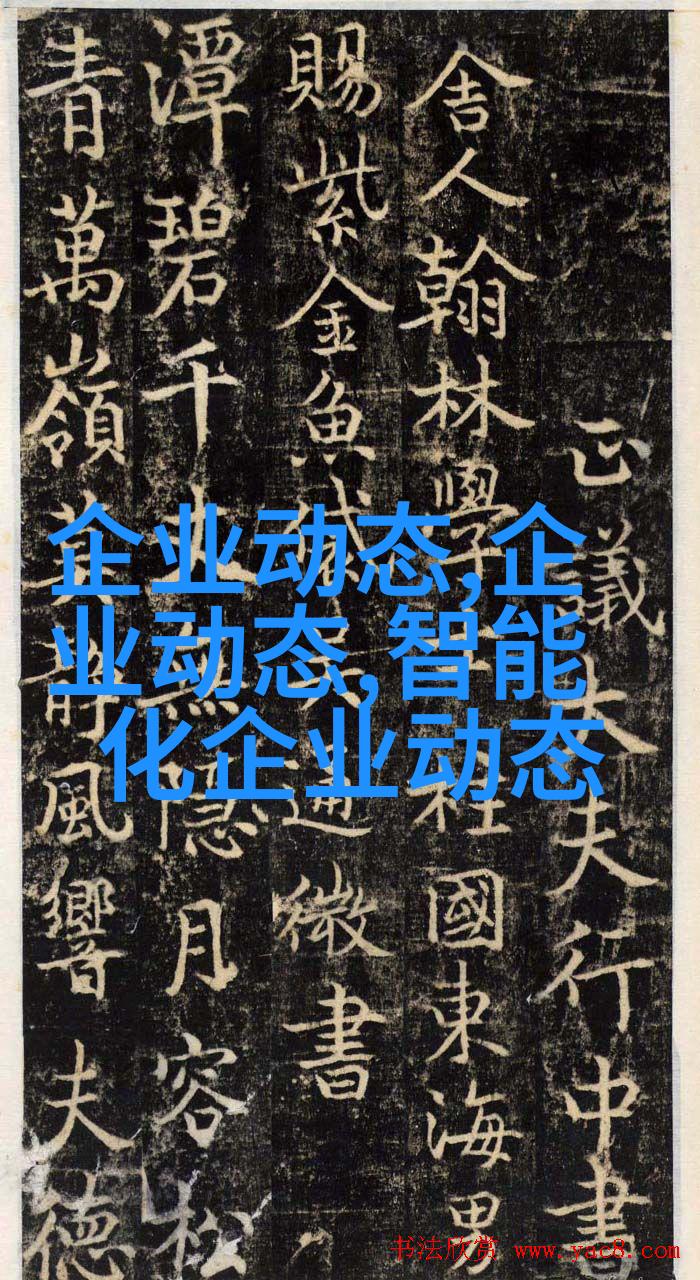 正議大夫行中書
舍人翰林學士柱國東海男
賜紫金魚袋徐通微書
潭碧千丈無隱月容松
青萬嶺莫靜風響夫德
企业动态,企
业动态,智能
化企业动态
书法欣赏 www.yac8.com